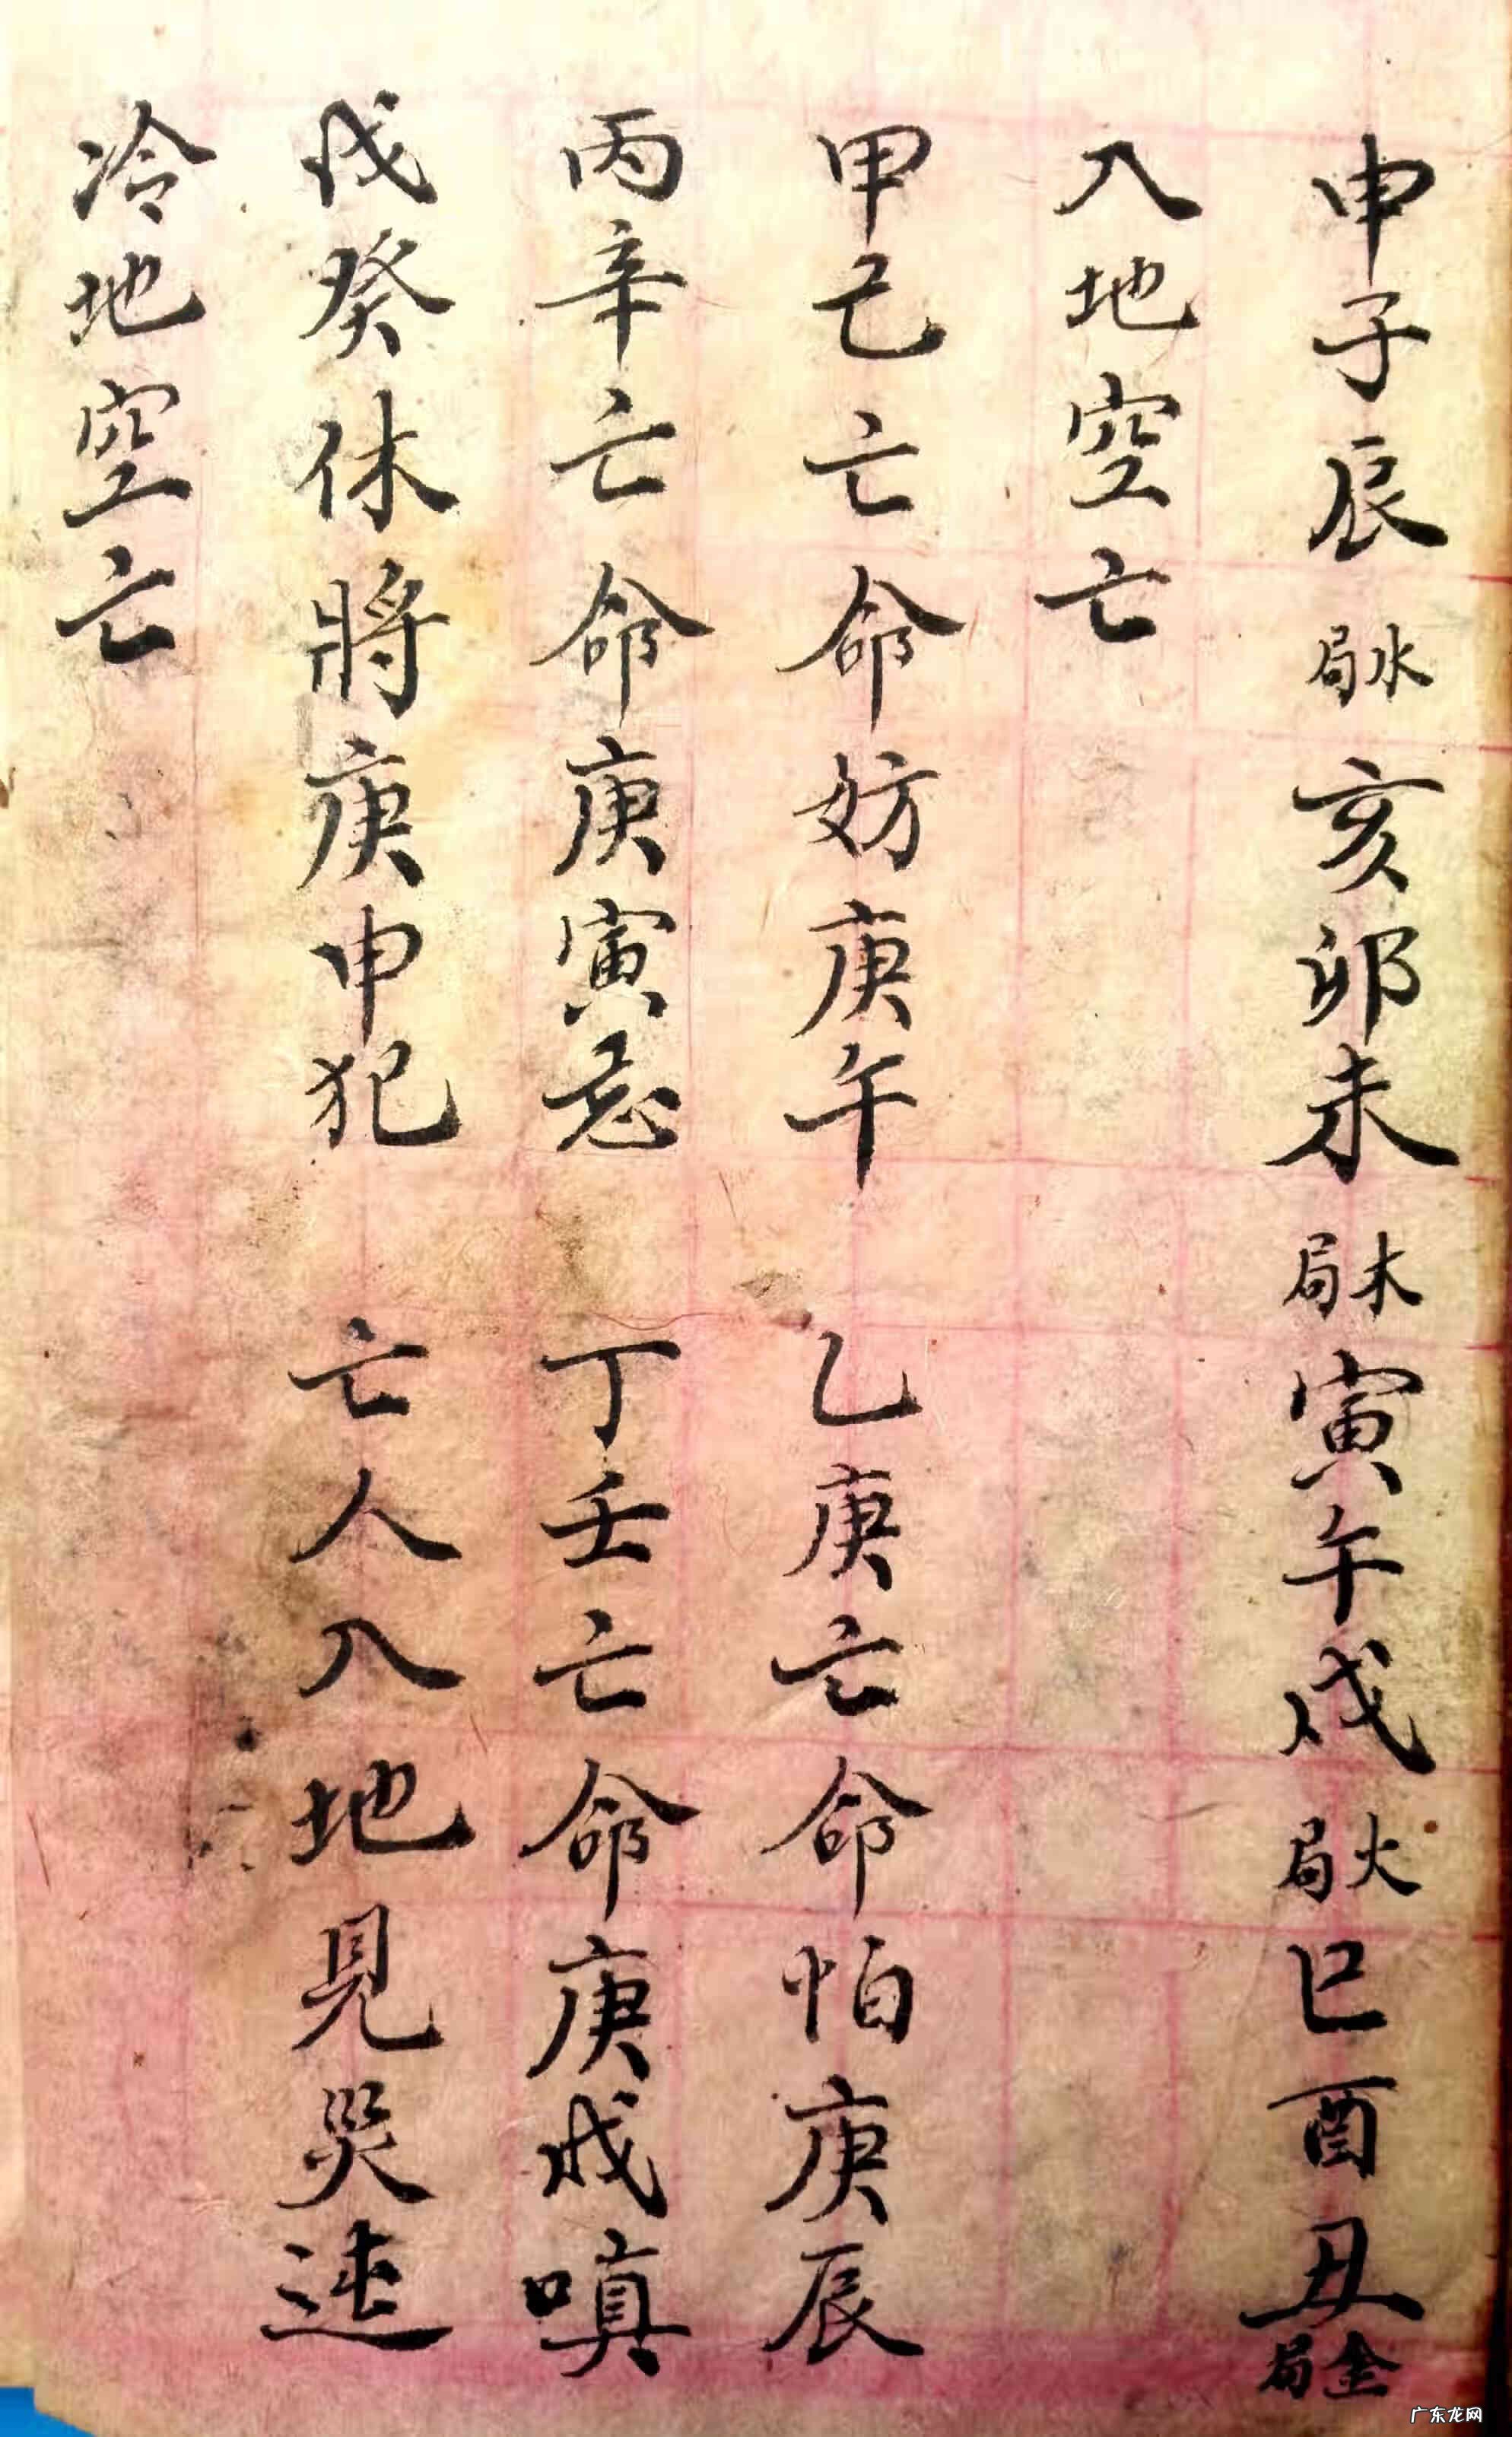 申子辰水局亥卯未木局寅午戌火局巳酉丑金局
入地空亡
甲己亡命妨庚午 乙庚亡命怕庚辰
丙辛亡命庚寅忌 丁壬亡命庚戌嗔
戊癸休將庚申犯 亡人入地見哭
冷地空亡
广东龙网